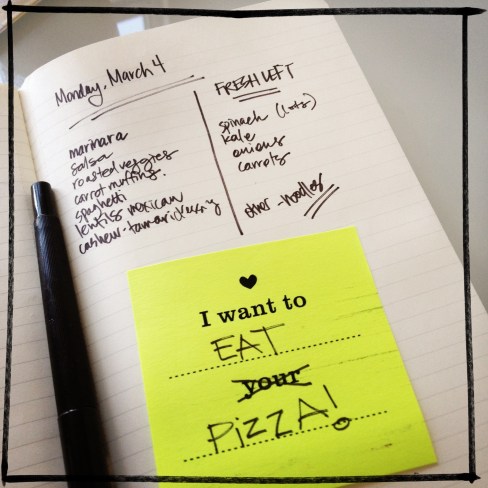 Monday, March 4
marinara
salsa
roasted veggies
carrot muffins.
spaghetti
lentils mexican
cashew-tamari
FRESH LEFT
spinach (lots)
kale
onions
carrots
other - noodles
I want to
EAT
your
PIZZA!